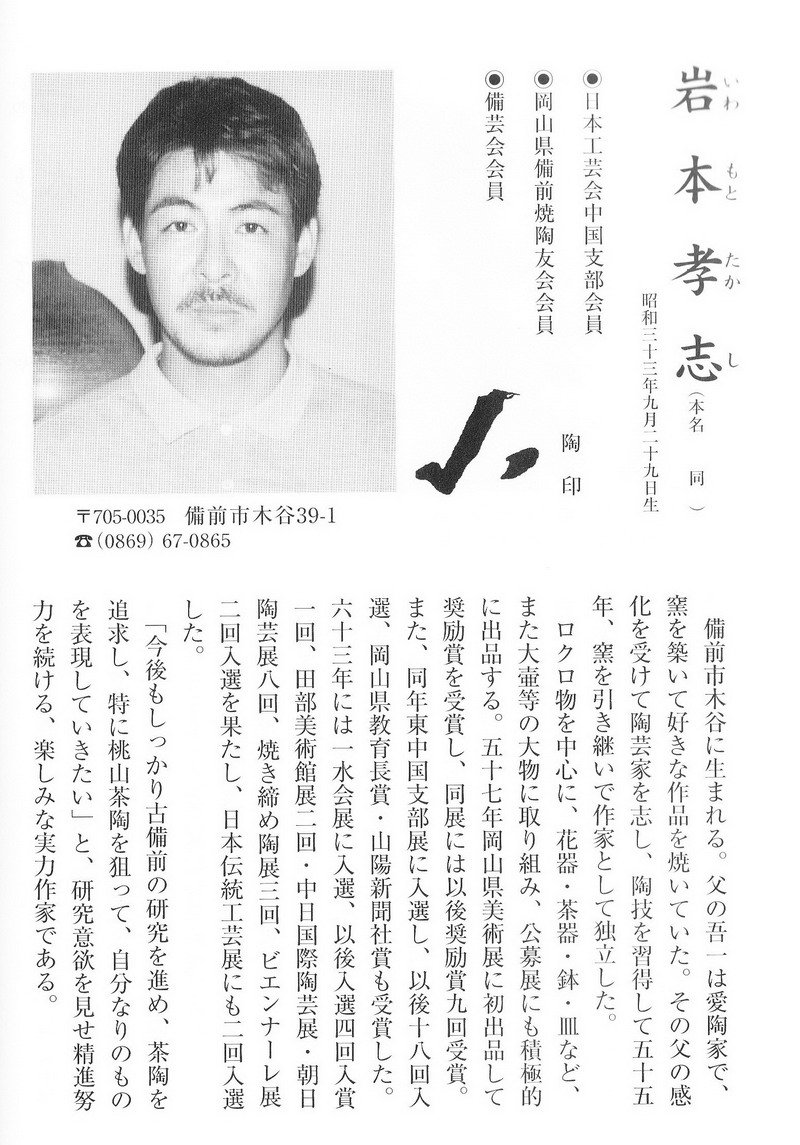 岩本孝志
いわ もと たか し
（本名 同）
昭和三十三年九月二十九日生
◉日本工芸会中国支部会員
◉岡山県備前焼陶友会会員
◉備芸会会員
陶印
〒705-0035 備前市木谷39-1
☎(0869) 67-0865
備前市木谷に生まれる。父の吾一は愛陶家で、
窯を築いて好きな作品を焼いていた。その父の感
化を受けて陶芸家を志し、陶技を習得して五十五
年、窯を引き継いで作家として独立した。
ロクロ物を中心に、花器・茶器・鉢・皿など、
また大壷等の大物に取り組み、公募展にも積極的
に出品する。五十七年岡山県美術展に初出品して
奨励賞を受賞し、同展には以後奨励賞九回受賞。
また、同年東中国支部展に入選し、以後十八回入
選、岡山県教育長賞・山陽新聞社賞も受賞した。
六十三年には一水会展に入選、以後入選四回入賞
一回、田部美術館展二回・中日国際陶芸展・朝日
陶芸展八回、焼き締め陶展三回、ビエンナーレ展
二回入選を果たし、日本伝統工芸展にも二回入選
した。
「今後もしっかり古備前の研究を進め、茶陶を
追求し、特に桃山茶陶を狙って、自分なりのもの
を表現していきたい」と、研究意欲を見せ精進努
力を続ける、楽しみな実力作家である。